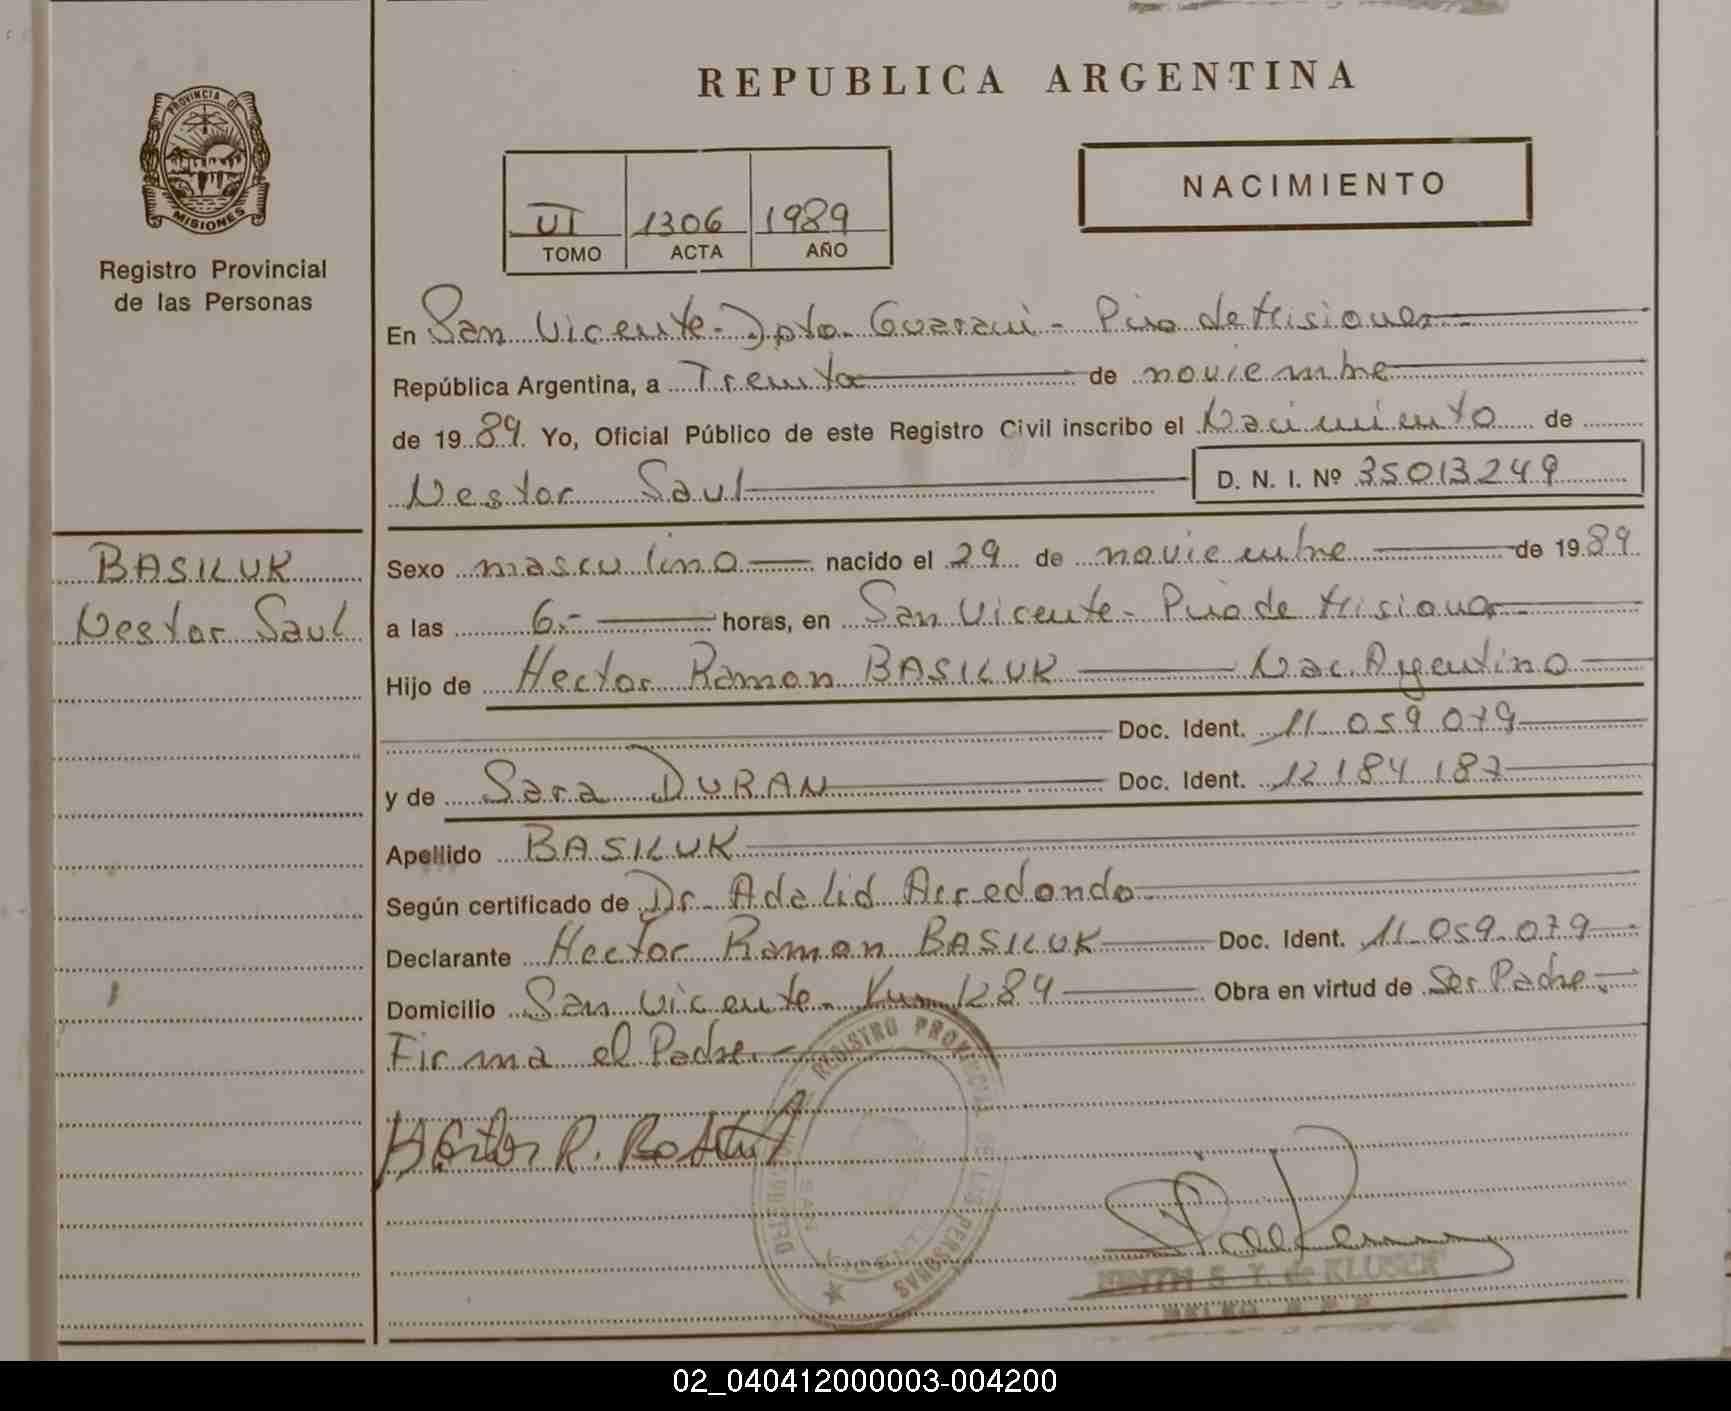 REPUBLICA ARGENTINA
PROVINCIA DE
MISIONES
Registro Provincial
de las Personas
NACIMIENTO
VI 1306 1989
TOMO ACTA AÑO
En San Vicente - Dpto. Guarani - Pcia de Misiones
República Argentina, a Treinta de noviembre
de 1989. Yo, Oficial Público de este Registro Civil inscribo el Nacimiento de
Nestor Saul D. N. I. Nº 35013249
BASILUK
Nestor Saul
Sexo masculino nacido el 29 de noviembre de 1989
a las 6.- horas, en San Vicente - Pcia de Misiones
Hijo de Hector Ramon BASILUK Nac. Argentino
Doc. Ident. 11.059.079
y de Sara DURAN Doc. Ident. 12184187
Apellido BASILUK
Según certificado de Dr. Adalid Arredondo
Declarante Hector Ramon BASILUK Doc. Ident. 11.059.079
Domicilio San Vicente - Km 1284 Obra en virtud de Ser Padre.-
Firma el Padre.-
Hector R.
REGISTRO PROVINCIAL DE LAS PERSONAS
SAN VICENTE
S. T. de KLUSER
02_040412000003-004200